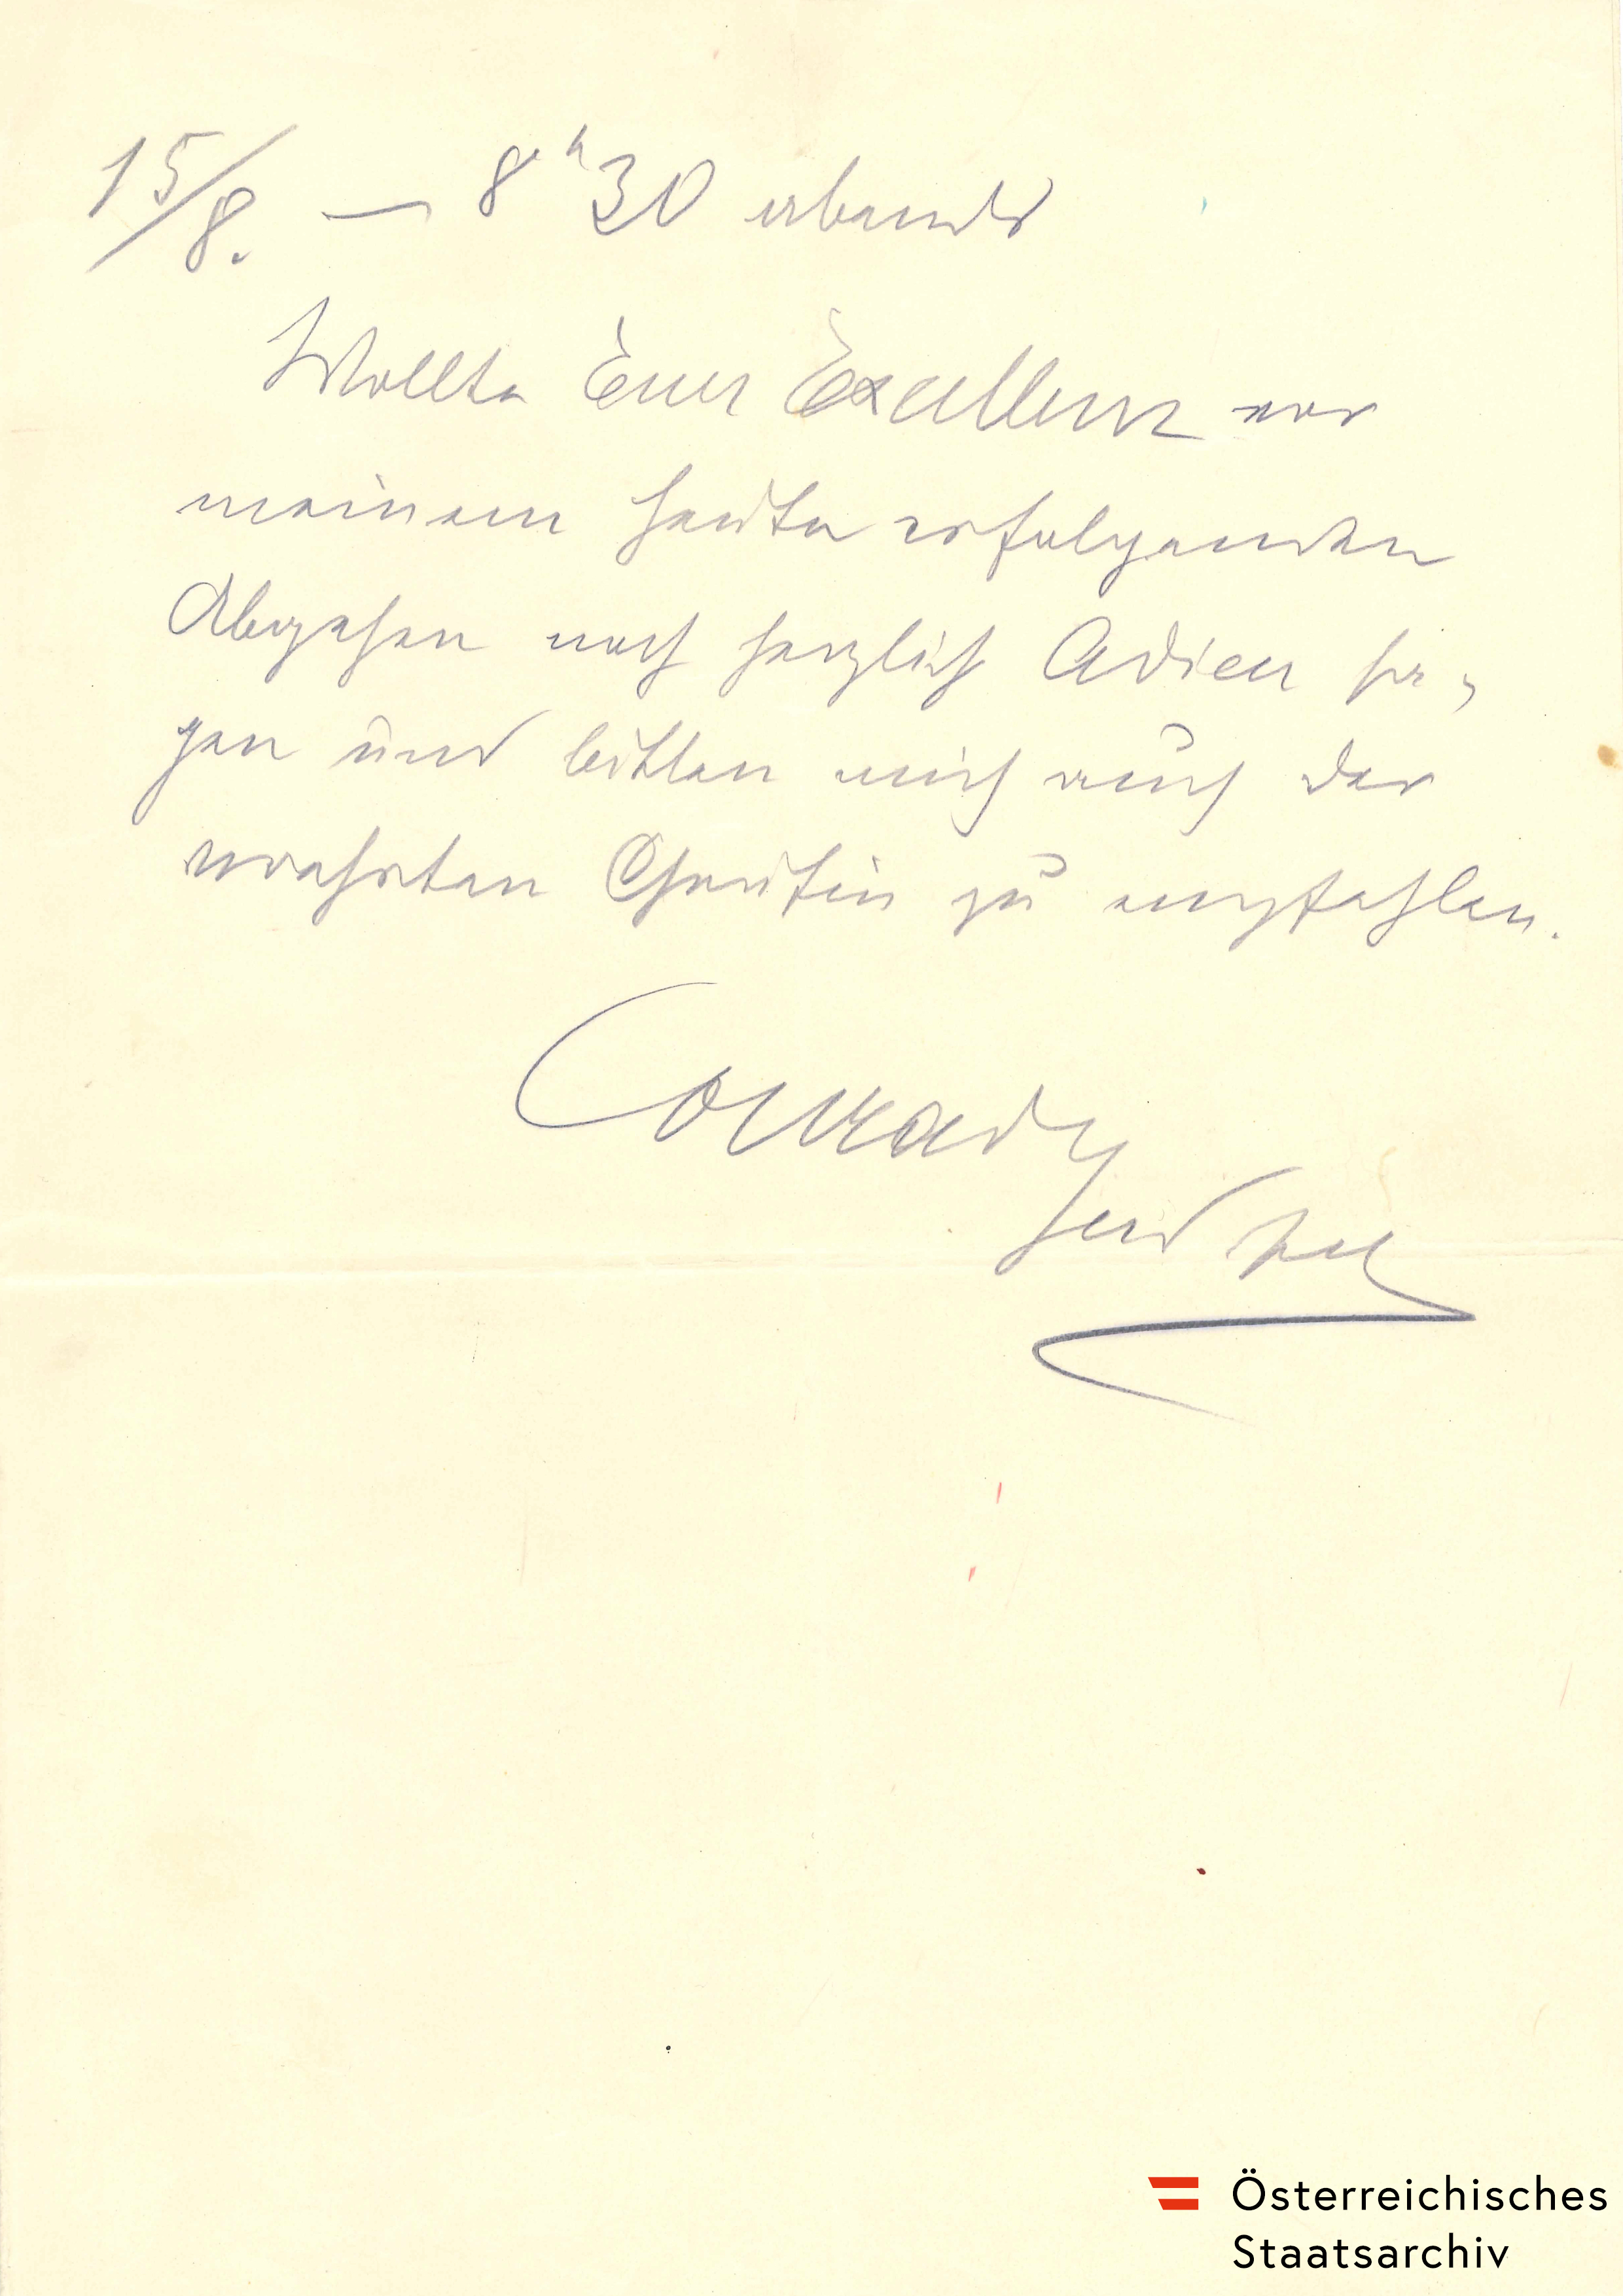 15/8. — 8h30 abends
Wollte Euer Excellenz vor
meinem heute erfolgenden
Abgehen noch herzlich Adieu sa-
gen und bitten mich auch der
verehrten Gräfin zu empfehlen.
Conrad
Österreichisches
Staatsarchiv